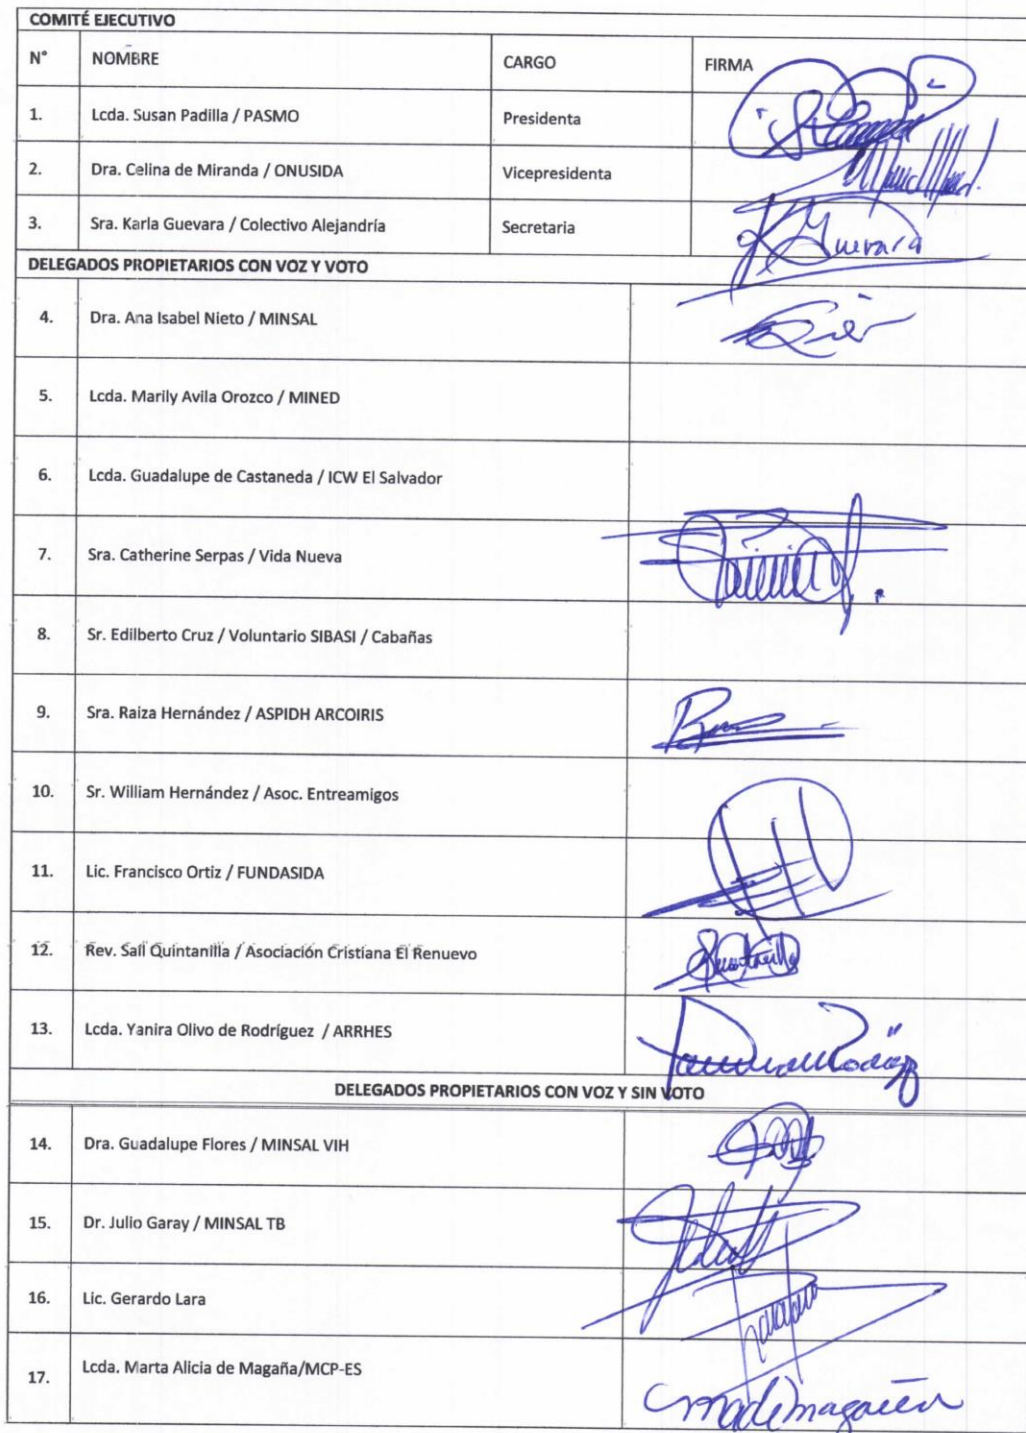 COMITÉ EJECUTIVO
N° NOMBRE CARGO FIRMA
1. Lcda. Susan Padilla / PASMO Presidenta
2. Dra. Celina de Miranda / ONUSIDA Vicepresidenta
3. Sra. Karla Guevara / Colectivo Alejandría Secretaria KGuevara
DELEGADOS PROPIETARIOS CON VOZ Y VOTO
4. Dra. Ana Isabel Nieto / MINSAL
5. Lcda. Marily Avila Orozco / MINED
6. Lcda. Guadalupe de Castaneda / ICW El Salvador
7. Sra. Catherine Serpas / Vida Nueva
8. Sr. Edilberto Cruz / Voluntario SIBASI / Cabañas
9. Sra. Raiza Hernández / ASPIDH ARCOIRIS
10. Sr. William Hernández / Asoc. Entreamigos
11. Lic. Francisco Ortiz / FUNDASIDA
12. Rev. Saíl Quintanilla / Asociación Cristiana El Renuevo
13. Lcda. Yanira Olivo de Rodríguez / ARRHES
DELEGADOS PROPIETARIOS CON VOZ Y SIN VOTO
14. Dra. Guadalupe Flores / MINSAL VIH
15. Dr. Julio Garay / MINSAL TB
16. Lic. Gerardo Lara
17. Lcda. Marta Alicia de Magaña/MCP-ES